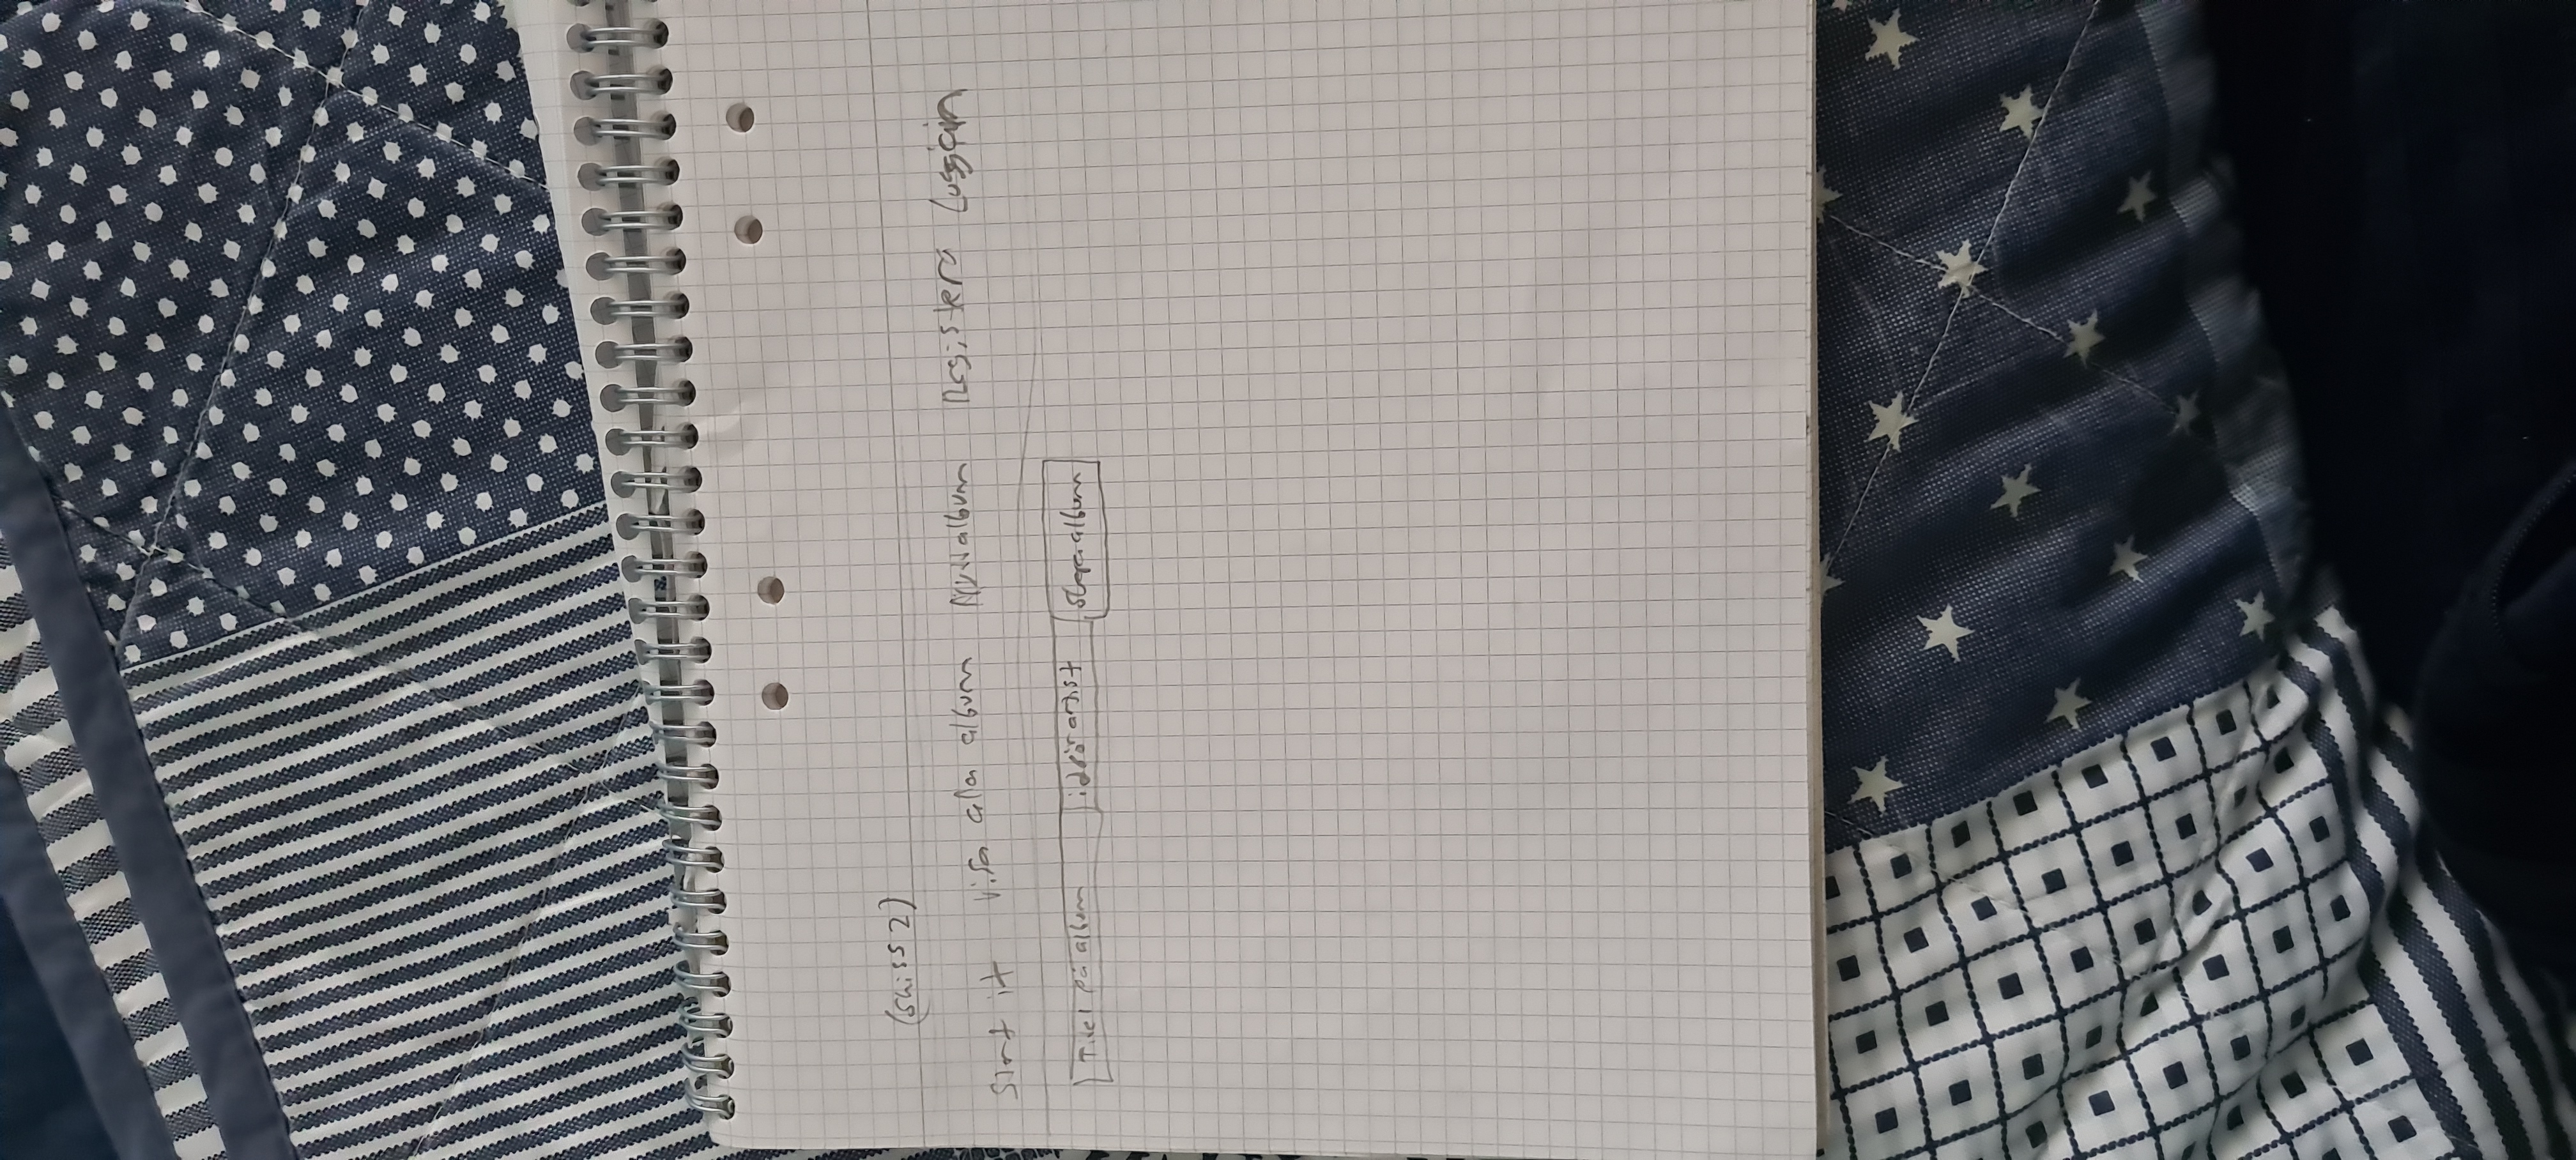 (skiss 2)
Start it Visa alla album Nytt album Registera Logga in
Titel på album id för artist Skapa album